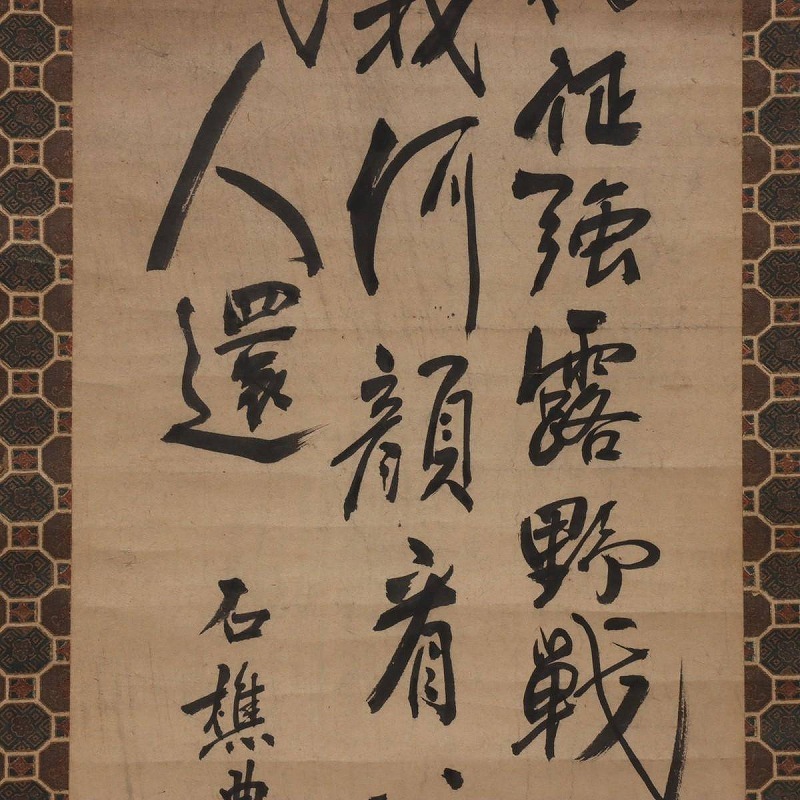 征強露野戰
我何顔看
人還
石樵